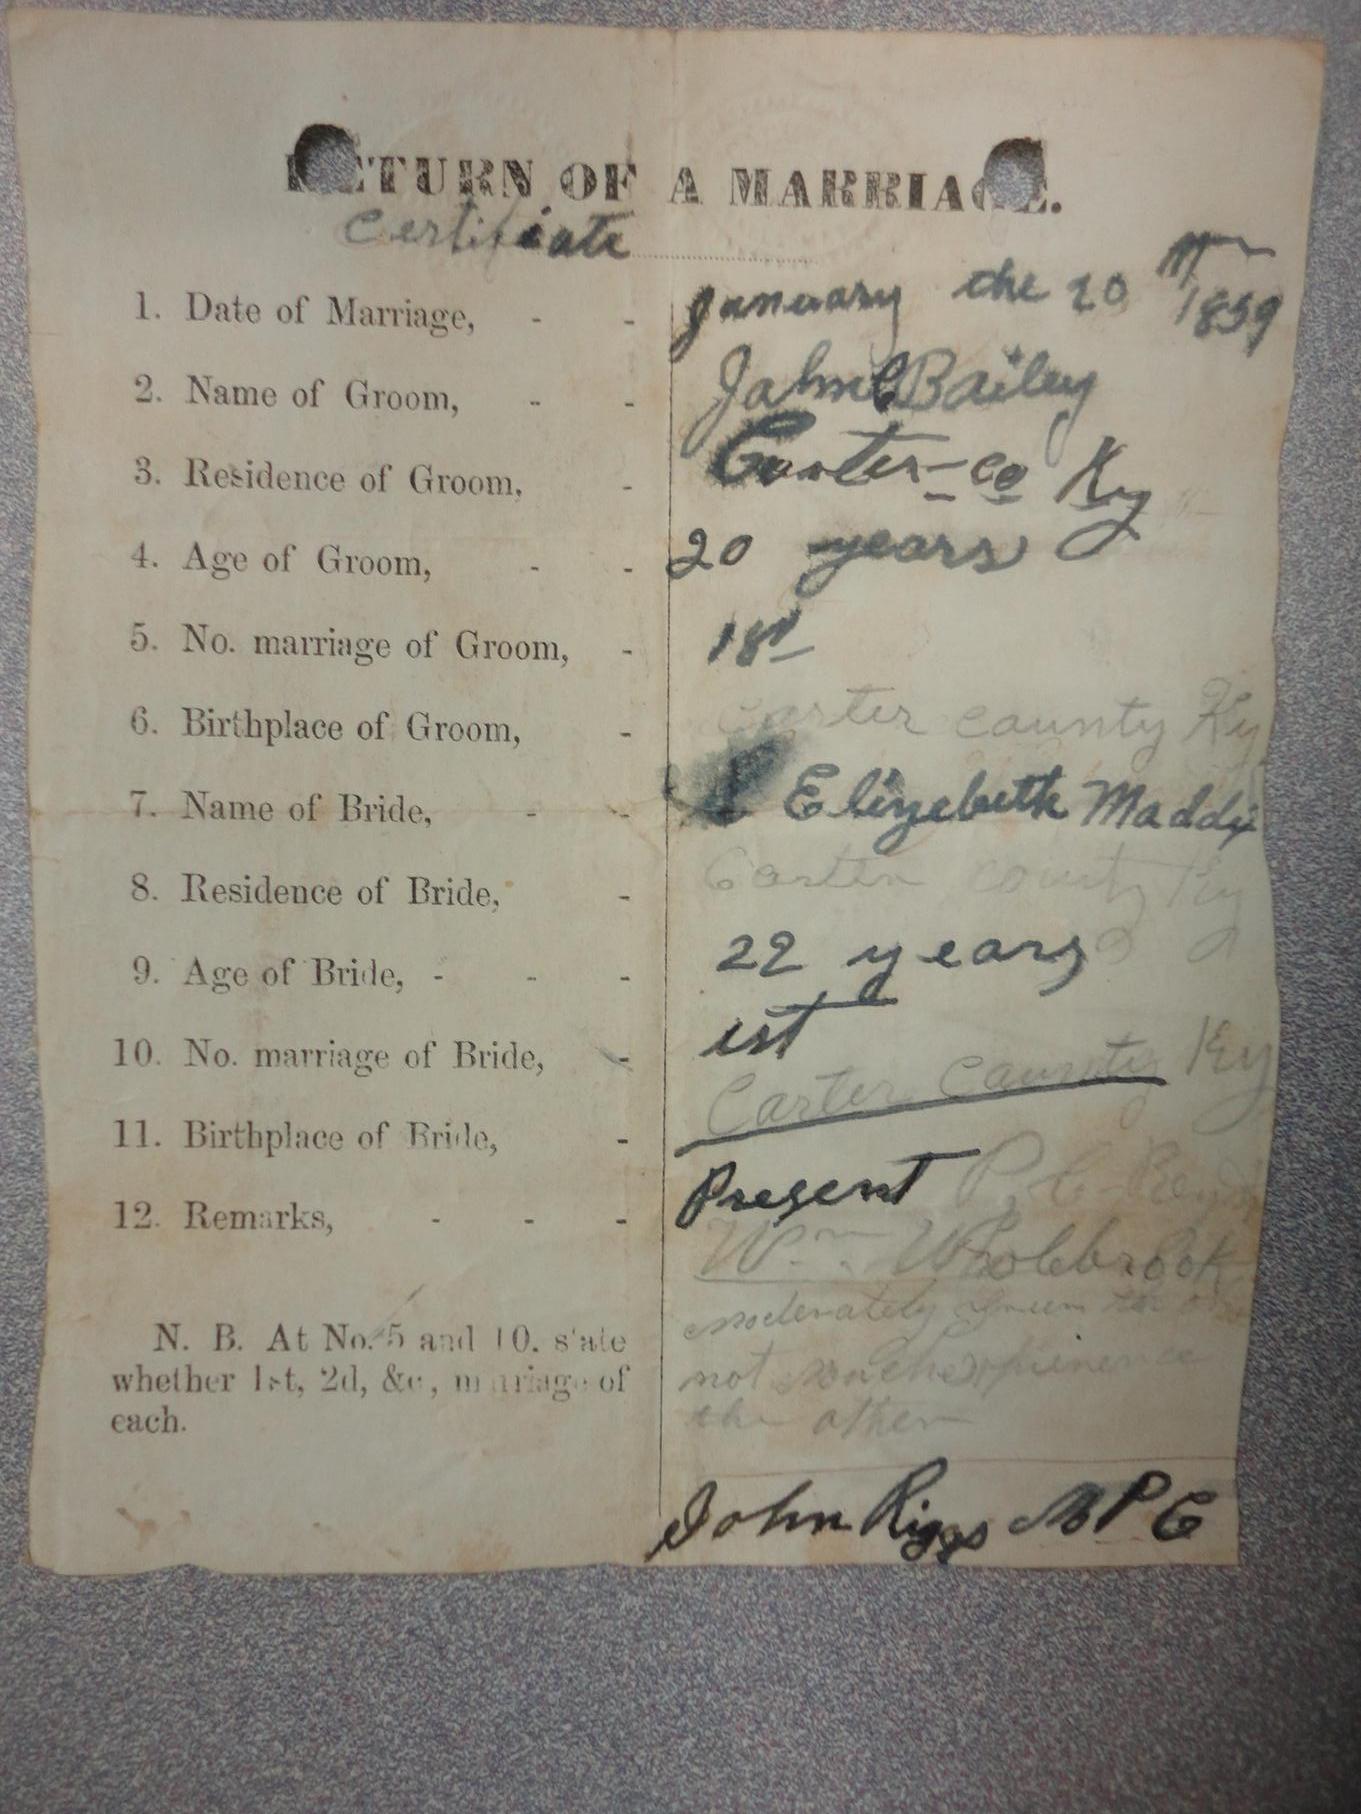 RETURN OF A MARRIAGE.
Certificate
1. Date of Marriage, - - January the 20th 1859
2. Name of Groom, - - John C Bailey
3. Residence of Groom, - Carter-co Ky
4. Age of Groom, - - 20 years
5. No. marriage of Groom, - 1st
6. Birthplace of Groom, - Carter county Ky
7. Name of Bride, - - Elizebeth Maddix
8. Residence of Bride, - Carter county Ky
9. Age of Bride, - - - 22 years
10. No. marriage of Bride, - 1st
11. Birthplace of Bride, - Carter County Ky
12. Remarks, - - - Present
Wm
moderately the
N. B. At No. 5 and 10. state
whether 1st, 2d, &c, marriage of not
each. the other
John Riggs M P C